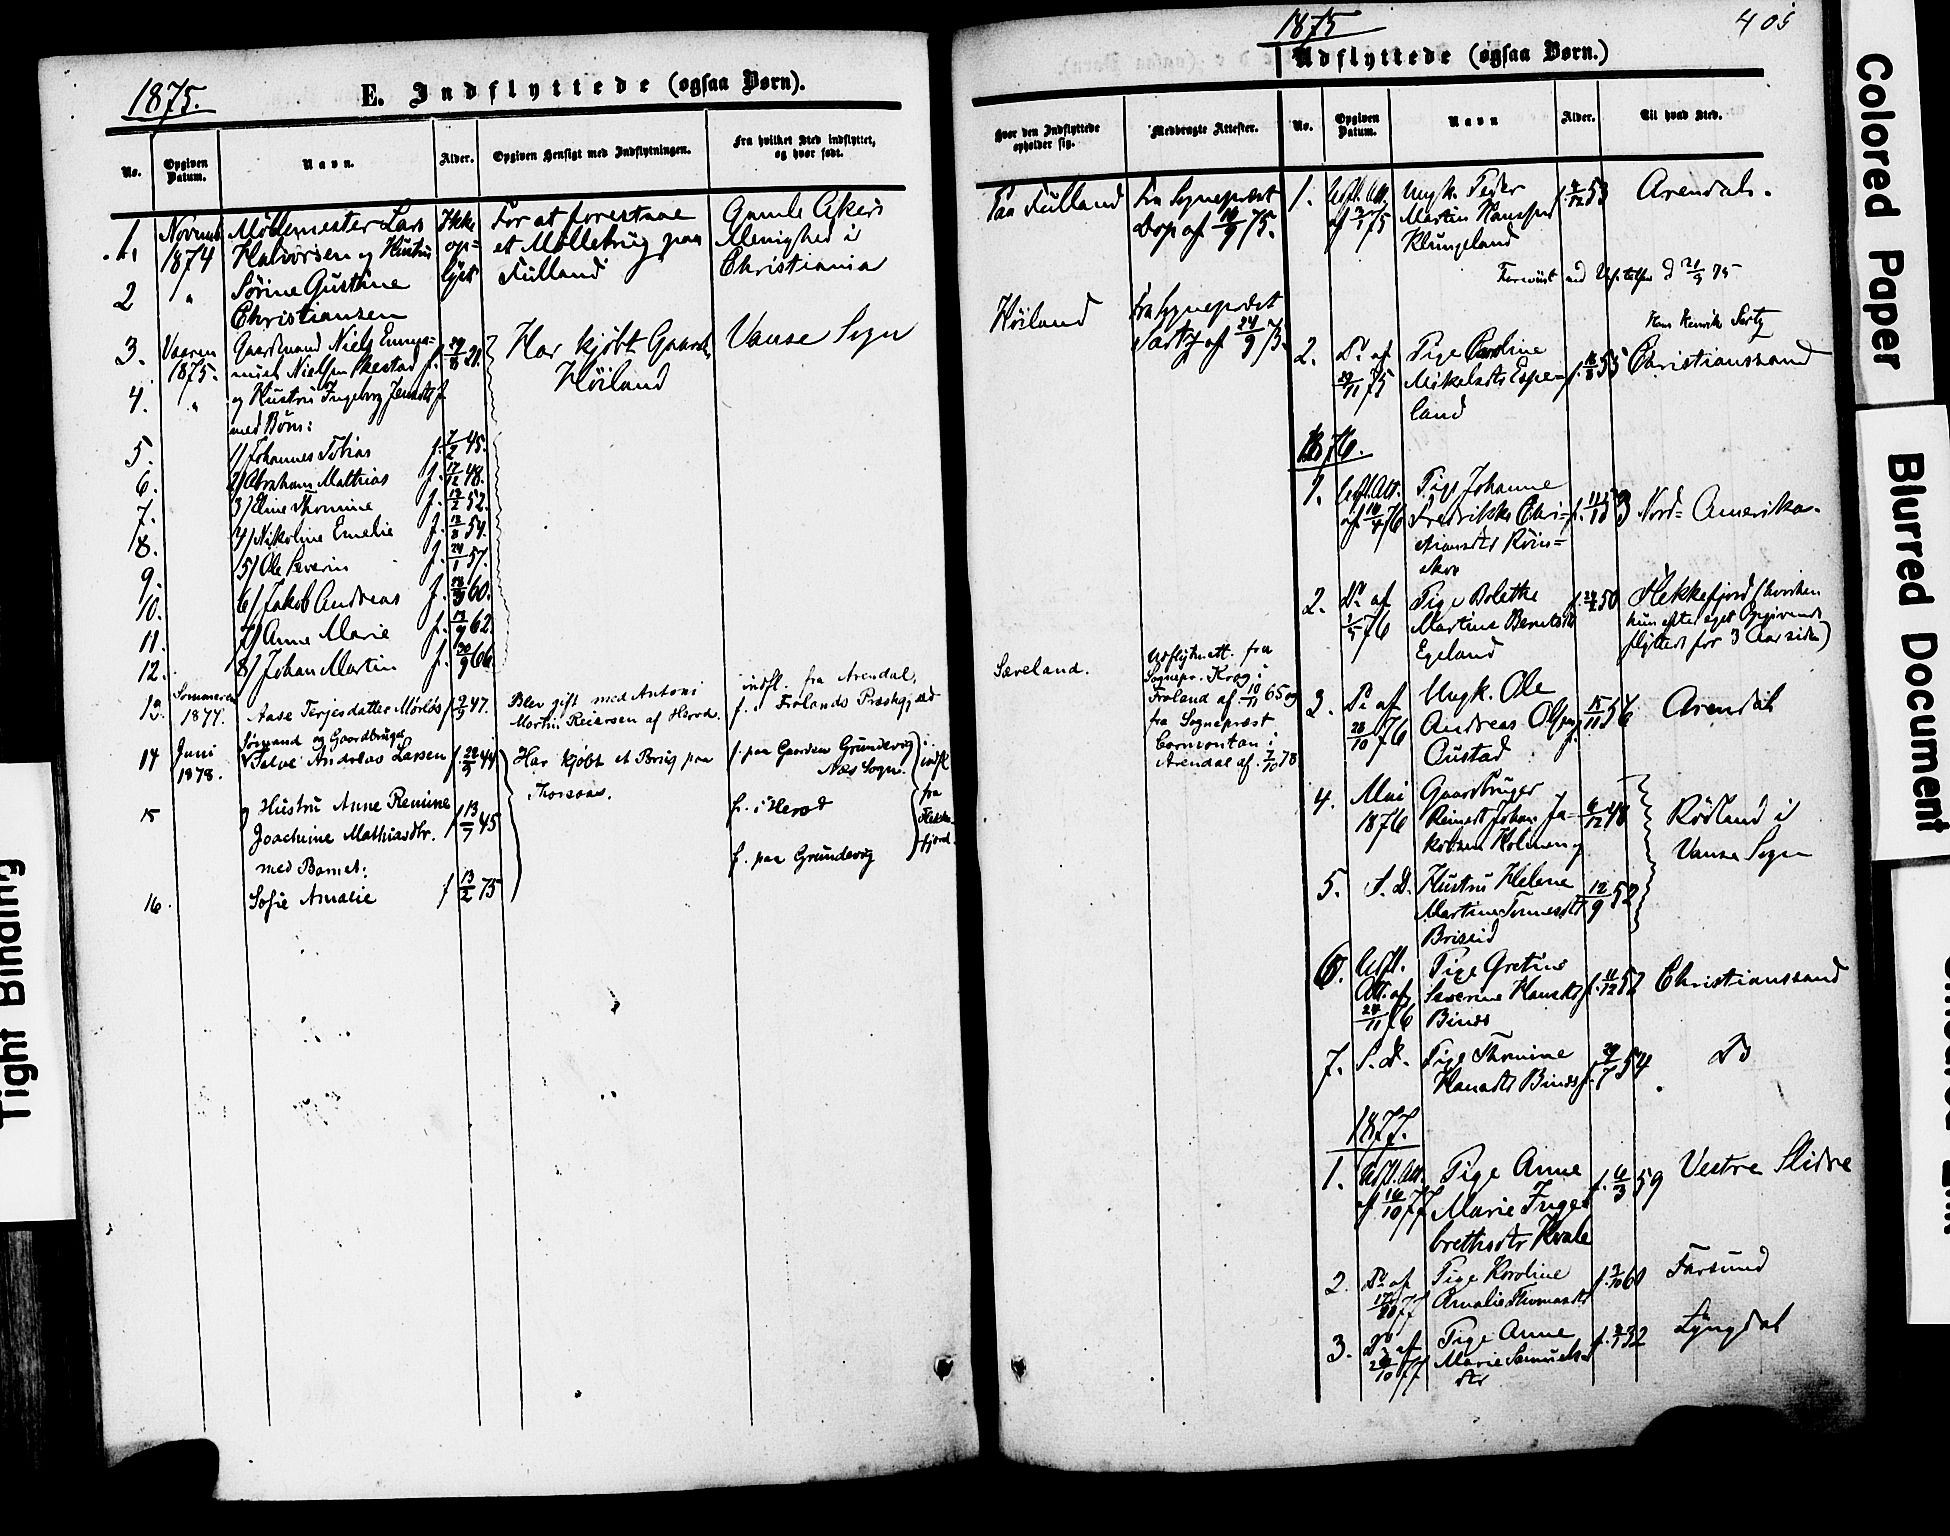 1875.
E. Indflyttede (ogsaa Børn).
No.
Opgiven Datum.
Navn.
Alder.
Opgiven Hensigt med Indflytningen.
Fra hvilket Sted indflyttet, og hvor født.
1.
Novemb
1874
Møllemester Lars
Halvorsen og Hustru
Ikke
op-
lyst
For at forestaae
et Møllebrug paa
Fulland
Gamle Akers
Menighed i
Christiania
2
"
Sørine Gustine
Christiansen
3.
Vaaren
1875.
Gaardmand Niels Emma-
nuel Nielsen Skestad f.
Har kjøbt Gaarden
Høiland
Vanse Sogn
4.
"
og Hustru Ingeborg Jensdtr f.
med Børn:
5.
1) Johannes Tobias f. 7/2 45.
6.
2) Abraham Mathias f. 17/12 48.
7.
3) Eline Thomine f. 13/2 52.
8.
4) Nikoline Emelie f. 13/8 54.
9.
5) Ole Severin f. 24/1 57.
10.
6) Jakob Andreas f. 60.
11.
7) Anne Marie f. 13/9 62.
12.
8) Johan Martin f. 20/9 66.
13.
Sommeren
1877.
Aase Terjesdatter
f. 47.
Blev gift med Antoni
Martin Reiersen af Herod.
indfl. fra Arendal,
f. i Frolands Præstegjæld
14
Juni
1878.
Sømand og Gaardbruger
Salve Andreas Larsen f. 44
Har kjøbt et Brug paa
f. paa Gaarden Grundevig
Næs Sogn.
indfl
fra
Flekke-
fjord.
15
Hustru Anne Regine
Joachime Mathiasdtr. f 13/7 45
f. i Herod
med Barnet:
f. paa Grundevig
16.
Sofie Amalie f 13/2 75
1875
405
Udflyttede (ogsaa Børn.)
Hvor den Indflyttede opholder sig.
Medbragte Attester.
No.
Opgiven Datum.
Navn
Alder.
Til hvad Sted.
Paa Fulland
Fra Sognepræst
Dop af 75.
1.
Udfl. Att.
af 75
Ungk. Peder
Martin Hanssen
Klungeland
53
Arendal.
Høiland
Fra Sognepræst
Sartz af 24/9 75.
Hans Henrik Sartz
2.
Do af
75
Pige Caroline
Mikelsdtr Espe-
land
55
Christianssand
1876.
1.
Udfl. Att.
af 10/4 76
Pige Johanne
Fredrikke Chri-
stiansdtr Røin-
skov
53
Nord-Amerika.
2.
Do af
1/5 76
Pige Bolette
Martine Berntsdtr
Egeland
50
Flekkefjord (hvorhen
hun efter eget Opgivende
flyttede for 3 Aar siden)
Sæveland.
Udflytn.att. fra
Sognepr. Krog i
Froland af 10/11 65 og
fra Sognepræst
i
Arendal af 7/10 78
3.
Do af
28/10 76
Ungk. Ole
Andreas Olsen
Oustad
15/11 56
Arendal
4.
Mai
1876
Gaardbruger
Reinert Johan Ja-
kobsen Holmen
48
Rødland i
Vanse Sogn
5.
S. D.
Hustru Helene
Martine Tønnesdtr
Briseid
12/9 52
6.
Udfl.
Att. af
24/11 76
Pige Gretine
Severine Hansdtr
Binds
f. 11/12 52
Christianssand
7.
S. D.
Pige Thomine
Hansdtr Binds f. 29/7 54
Do
1877.
1.
Udfl. Att.
af 16/10 77
Pige Anne
Marie Inge-
brethsdtr Kvale
f. 6/3 59
Vestre Slidre
2.
Do af
77
Pige Karoline
Amalie Thomasdtr
f. 60
Farsund
3.
Do af
77
Pige Anne
Marie Samuels-
dtr
f. 32
Lyngdal
Colored Paper
Blurred Document
Tight Binding